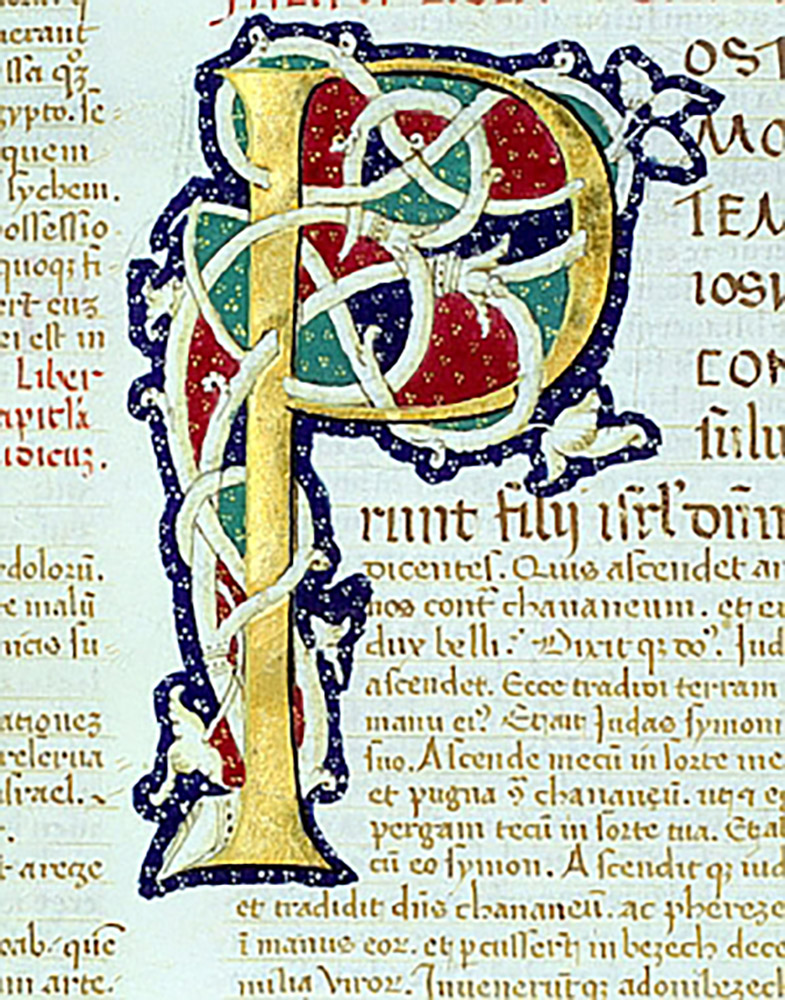 erant
ssa qꝫ
gypto. se
quem
sychem.
ossessio
quoqꝫ fi
ert eiꝫ
ei est in
Liber
udicuꝫ.
dolorū.
e malū
su
ationeꝫ
israel.
oab. quē
m arte.
P OST
MO
TEM
IOSU
CON
sulu
runt filij isrl' dn̄m
dicentes. Quis ascendet an
nos cont̄ chananeum. et er
dux belli? Dixit qꝫ do. Jud
ascendet. Ecce tradidi terram
manu ei? Et ait Judas symoni
suo. Ascende mecū in sorte me
et pugna ꝯ chananeū. ut
pergam tecū in sorte tua. Et ab
cū eo symon. Ascendit qꝫ iud
et tradidit dn̄s chananeū. ac phereze
ī manus eoꝝ. et pcusserūt in bezech dece
milia viroꝝ. Inueneruntqꝫ adonibezech